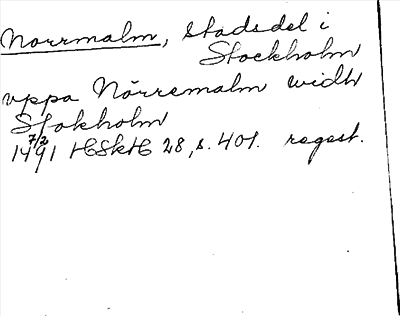 Norrmalm, stadsdel i
Stockholm
uppa Nörremalm widh
Stokholm
7/2
1491 HSkH 28, s. 401. regest.